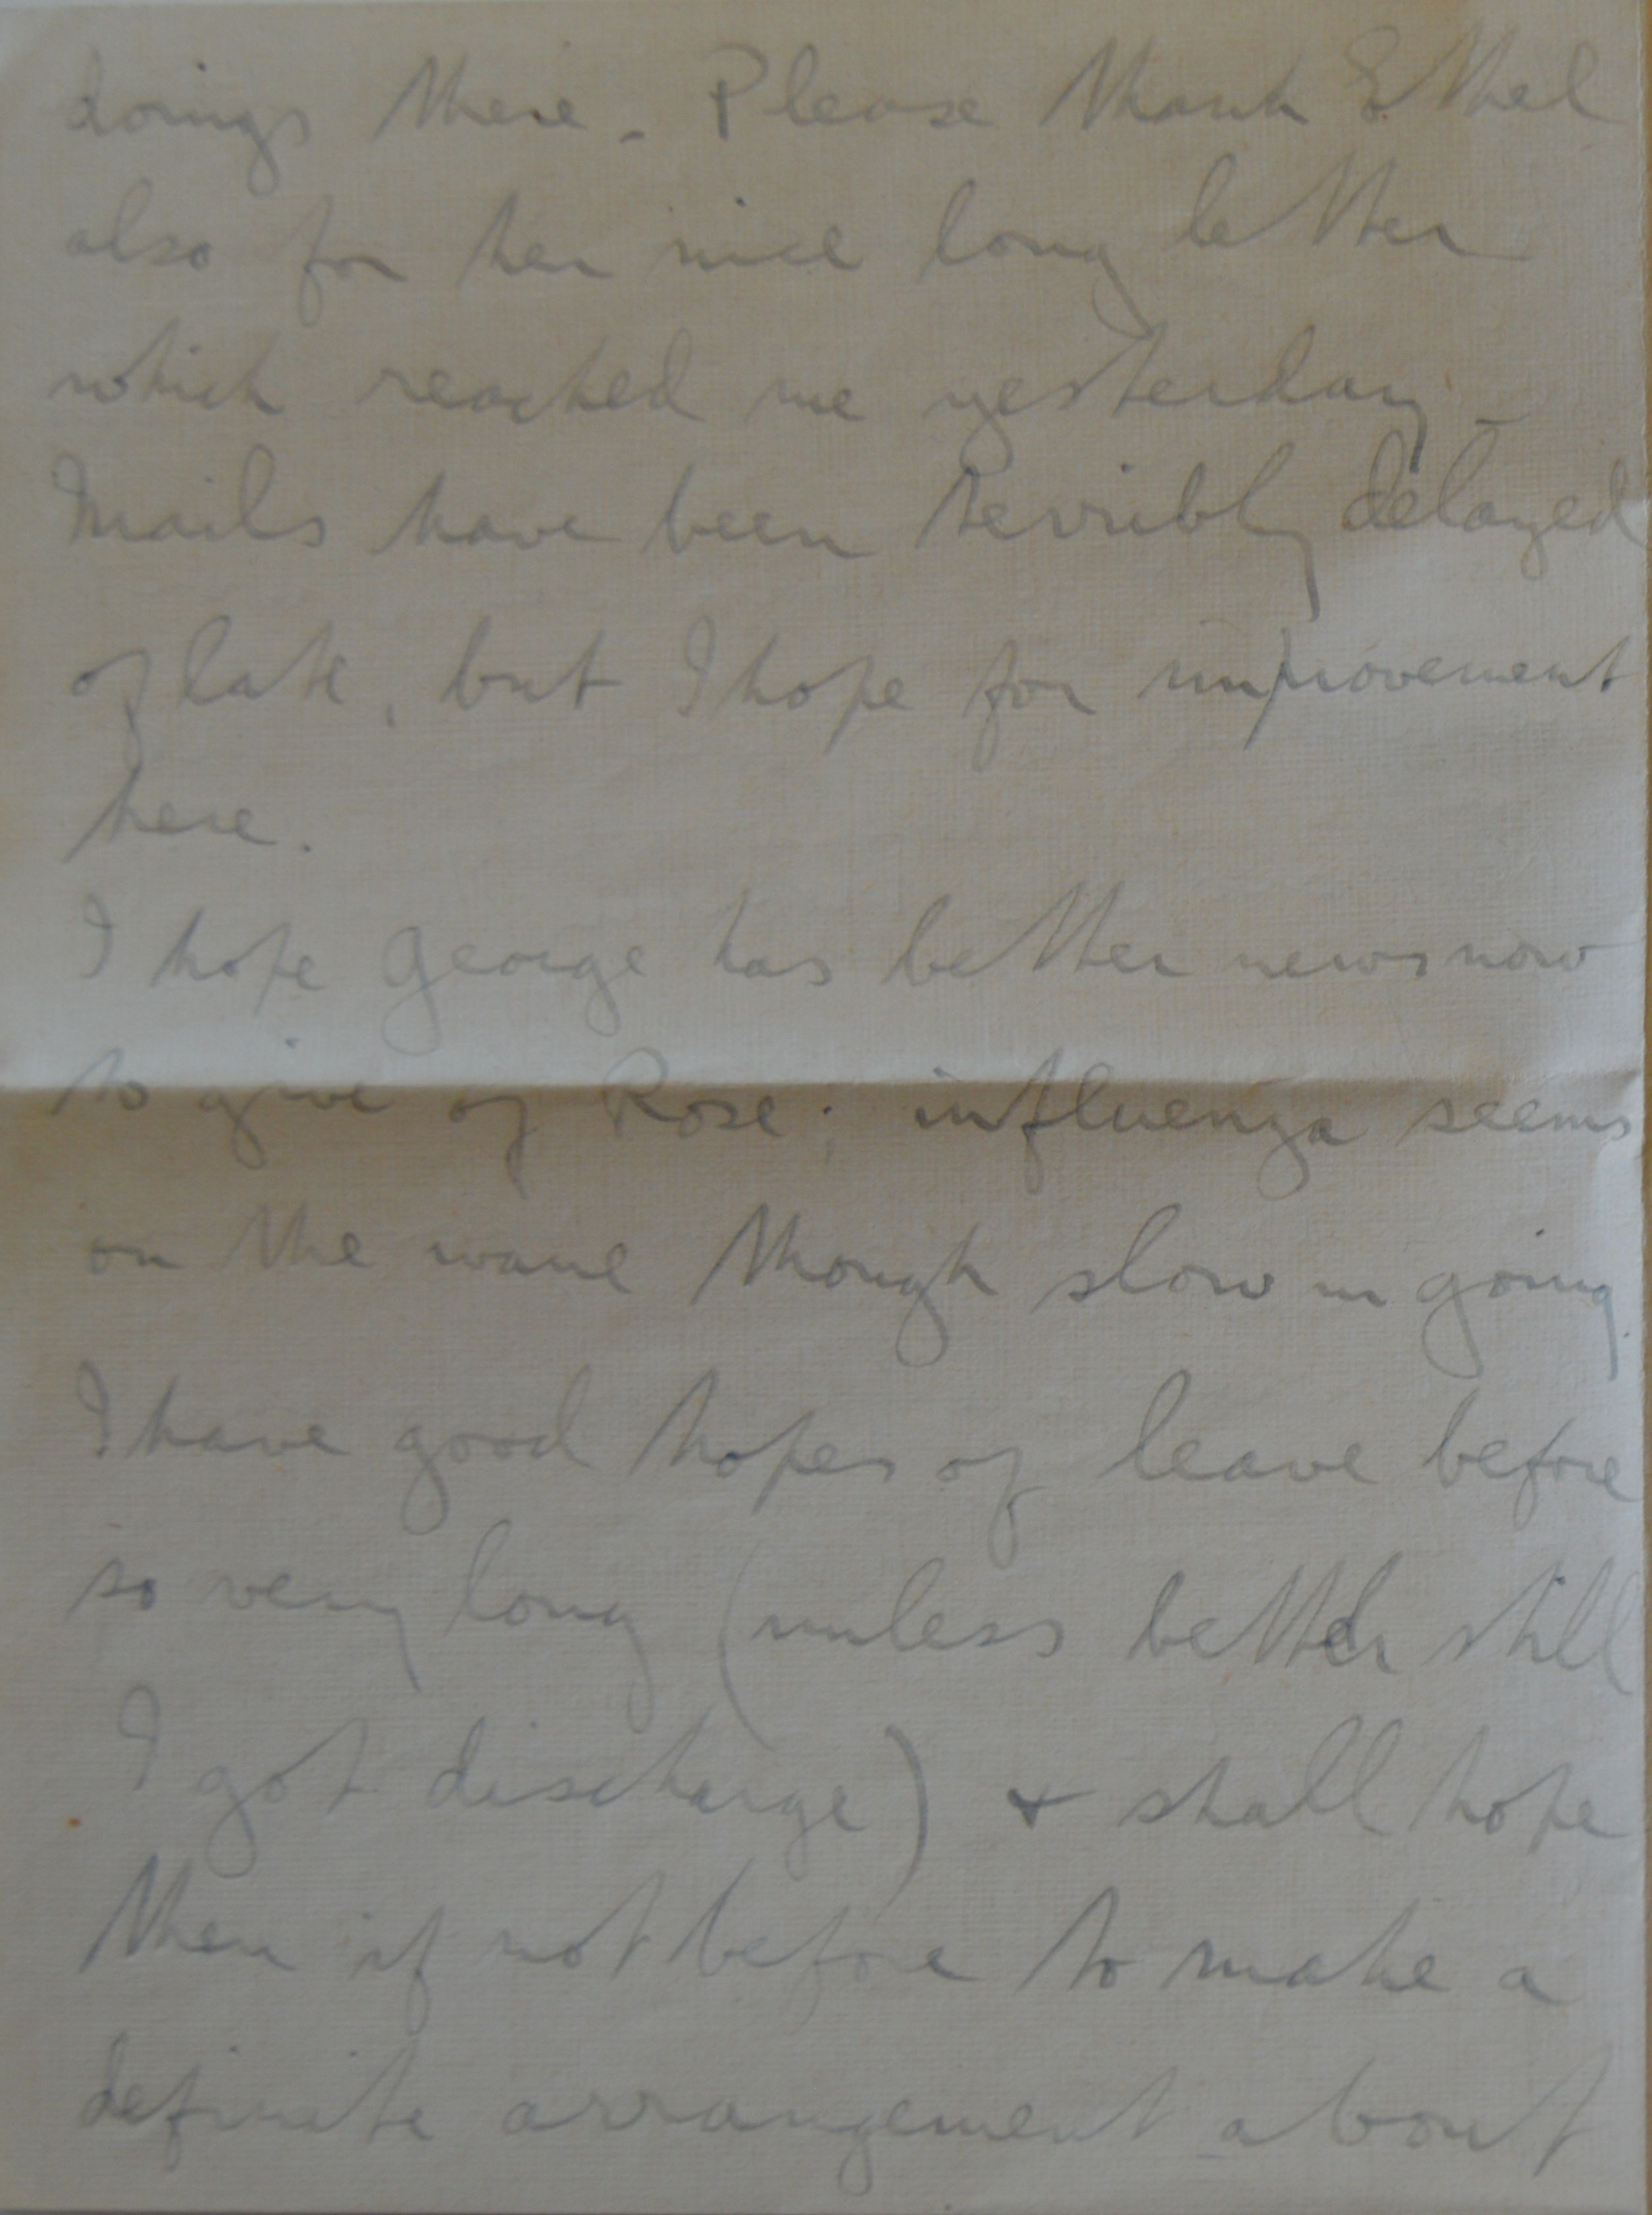 doings there - Please thank Ethel
also for her nice long letter
which reached me yesterday -
Mails have been terribly delayed
of late, but I hope for improvement
here.
I hope George has better news now
to give of Rose; influenza seems
on the wane though slow in going.
I have good hopes of leave before
so very long (unless better still
I got discharge) & shall hope
then if not before to make a
definite arrangement about